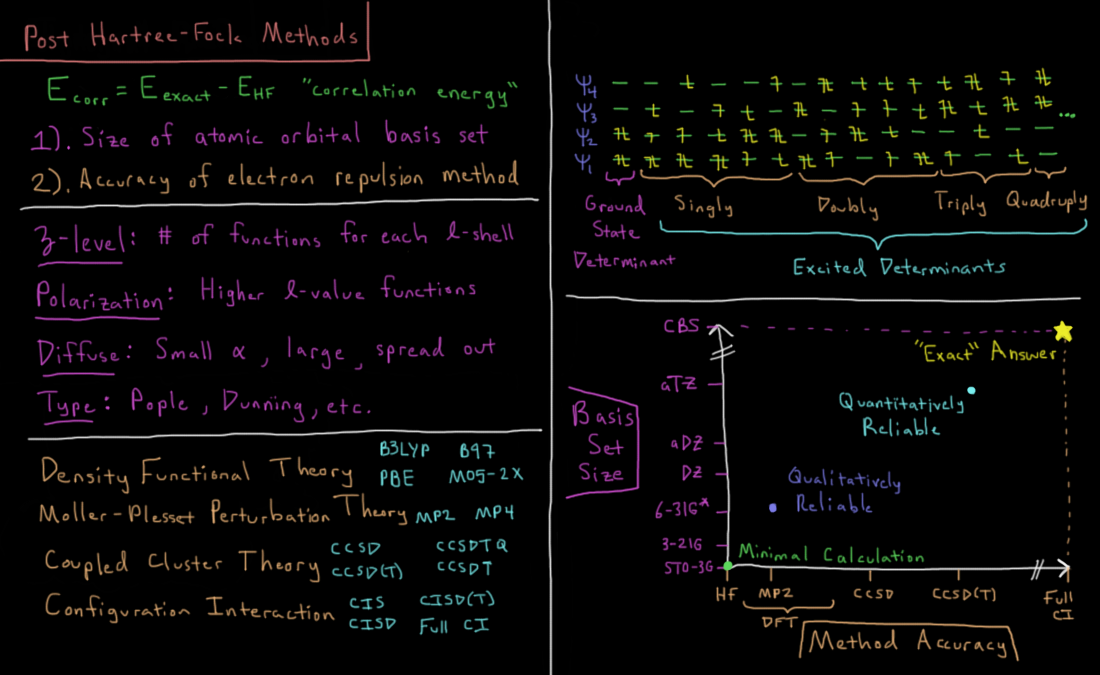 Post Hartree-Fock Methods
E corr = E exact - E HF "correlation energy"
1). Size of atomic orbital basis set
2). Accuracy of electron repulsion method
z-level: # of functions for each l-shell
Polarization: Higher l-value functions
Diffuse: Small α, large, spread out
Type: Pople, Dunning, etc.
Density Functional Theory
B3LYP B97
PBE M05-2X
Moller-Plesset Perturbation Theory MP2 MP4
Coupled Cluster Theory
CCSD CCSDTQ
CCSD(T) CCSDT
Configuration Interaction
CIS CISD(T)
CISD Full CI
Ψ4
Ψ3
...
Ψ2
Ψ1
Ground State Determinant
Singly Doubly Triply Quadruply
Excited Determinants
CBS
"Exact" Answer
aTZ
Quantitatively
Reliable
Basis
Set
Size
aDZ
DZ
Qualitatively
Reliable
6-31G*
3-21G
Minimal Calculation
STO-3G
HF MP2 CCSD CCSD(T) Full CI
DFT
Method Accuracy